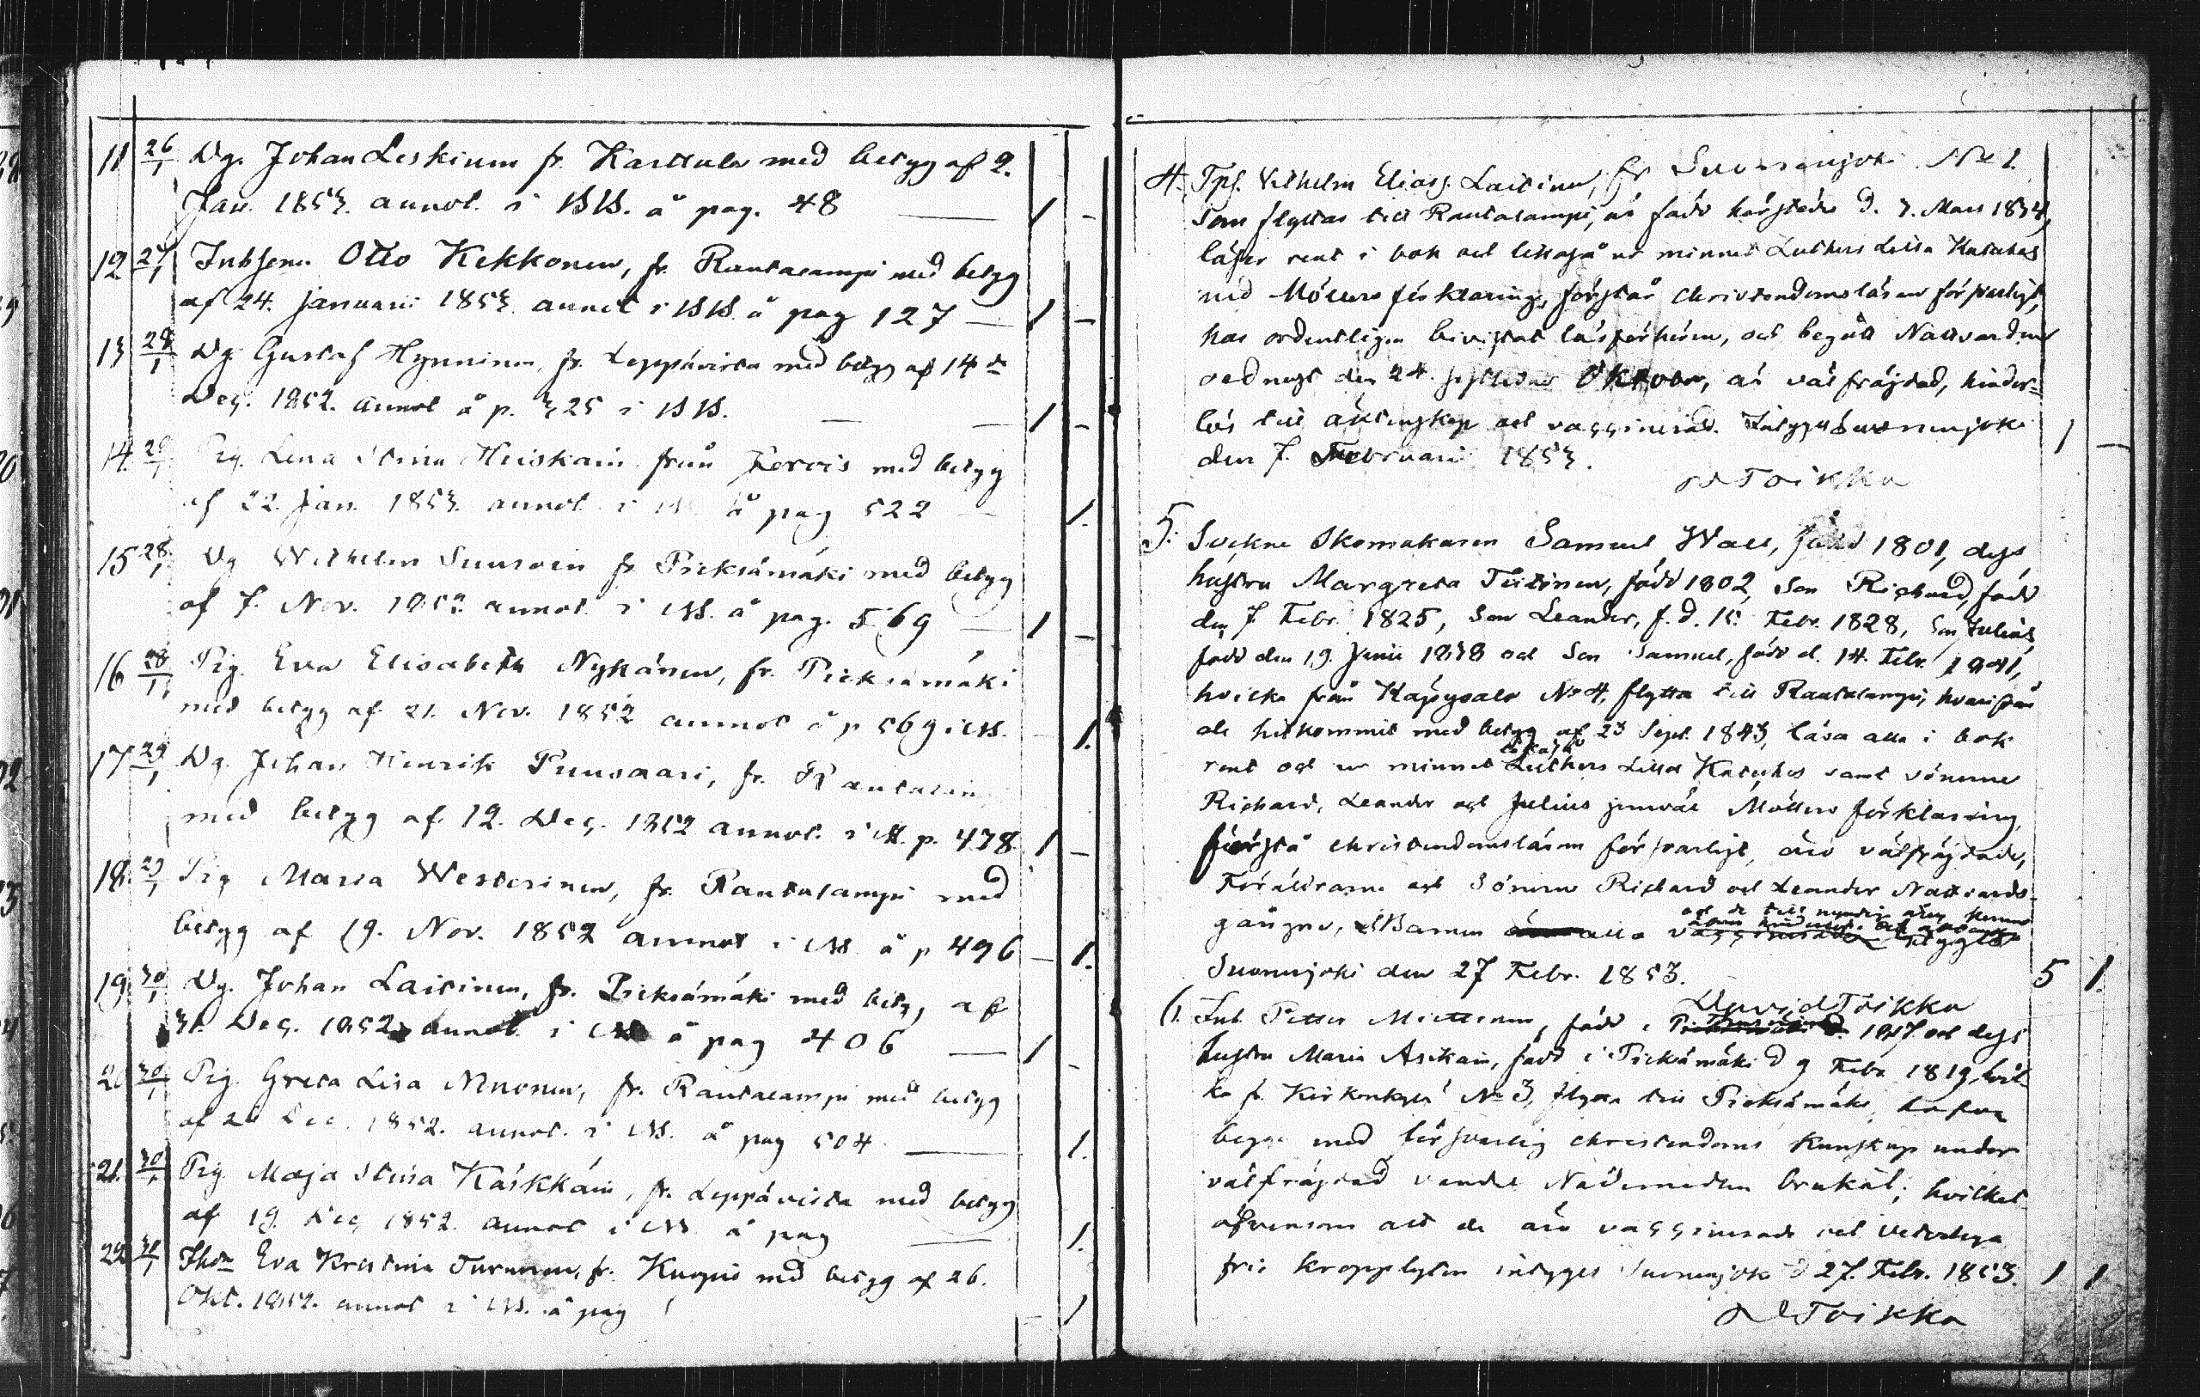 11 26/1 Dg. Johan Leskinen fr. Karttula med betyg af 2.
Jan. 1853. annot. i NB. å pag. 48 — 1 -
12 27/1 Otto Kekkonen, fr. Rautalampi med betyg
af 24. januari 1853. annot i NB. å pag 127 — 1 -
13 28/1 Dg. Gustaf Hynninen, fr. Leppävirta med betyg af 14de
Dec. 1852. annot å p. 325 i NB. — 1 -
14. 28/1 Pig. Lena Stina Heiskain från Jorois med betyg
af 22. Jan. 1853. annot i NB å pag 522 — 1.
15 28/1 Dg Wilhelm Suuroin fr Pieksämäki med betyg
af 7. Nov. 1852 annot. i NB. å pag. 569 — 1 -
16 28/1 Pig. Eva Elisabeth Nykänen, fr. Pieksämäki
med betyg af 21. Nov. 1852 annot å p 569 i NB. - 1.
17 29/1 Dg. Johan Henrik Puusaari, fr. Rantasalmi
med betyg af 12. Dec. 1852 annot. i NB. p. 478. 1 -
18. 29/1 Pig Maria Westerinen, fr. Rautalampi med
betyg af 19. Nov. 1852 annot i NB å p 496 - 1.
19. 30/1 Dg. Johan Laitinen, fr. Pieksämäki med betyg af
31. Dec. 1852 annot i NB å pag 406 — 1 -
20 30/1 Pig. Greta Lisa Nenonen, fr. Rautalampi med betyg
af Dec. 1852. annot. i NB. å pag 504 — 1.
21. 30/1 Pig Maja Stina Käikkäin, fr. Leppävirta med betyg
af 19. Dec 1852. annot i NB å pag — 1.
22. 31/1 Eva Kristina Turunen, fr. Kuopio med betyg af 26.
Okt. 1852. annot i NB. å pag 1 - 1
4. Tps. Vilhelm Eliass. Laitinen, fr Suonenjoki No 1.
som flyttar till Rautalampi, är född härstädes d. 7. Mars 1834,
läser rent i bok och likaså ur minnet Luthers Lilla Kateches
med Möllers förklaring, förstår christendomsläran försvarligt,
har ordentligen bivistat läsförhören, och begått Nattvarden
sednast den 24. Oktober, är välfräjdad, hinder-
lös till äktenskap och vaccinerad. Intygas Suonenjoki
den 7. Februari 1853. 1 —
D Toikka
5. Sockne Skomakaren Samuel Wall, född 1801, dess
hustru Margreta Tiitinen, född 1802, Son Richard, född
den 7 Febr. 1825, Son Leander, f. d. 15 Febr. 1828, Son Julius,
född den 19. Junii 1838 och Son Samuel, född d. 14. Febr. 1841,
hvilka från Käpysalo No 4. flytta till Rautalampi, hvarifrån
de hitkommit med betyg af 23 Sept. 1843, läsa alla i bok
rent och ur minnet likaså Luthers Lilla Kateches samt sönerne
Richard, Leander och Julius jemväl Möllers förklaring,
förstå christendomsläran försvarligt, äro välfräjdade,
Föräldrarne och Sönerne Richard och Leander Nattvards-
gångne, Barnen alla vaccinerade
Suonenjoki den 27 Febr. 1853. 5 1.
David Toikka
6. Inh Petter Miettinen, född i 1817. och dess
hustru Maria Asikain, född i Pieksämäki d 9 Febr 1819, hvil-
ka fr. Kirkonkylä No 3, flytta till Pieksämäki, hafva
begge med försvarlig christendoms kunskap under
välfräjdad vandel Nådemedlen brukat; hvilket
äfvensom att de äro vaccinerade och veterligen
fria kropplyten intygas Suonenjoki d 27. Febr. 1853. 1 1
D Toikka